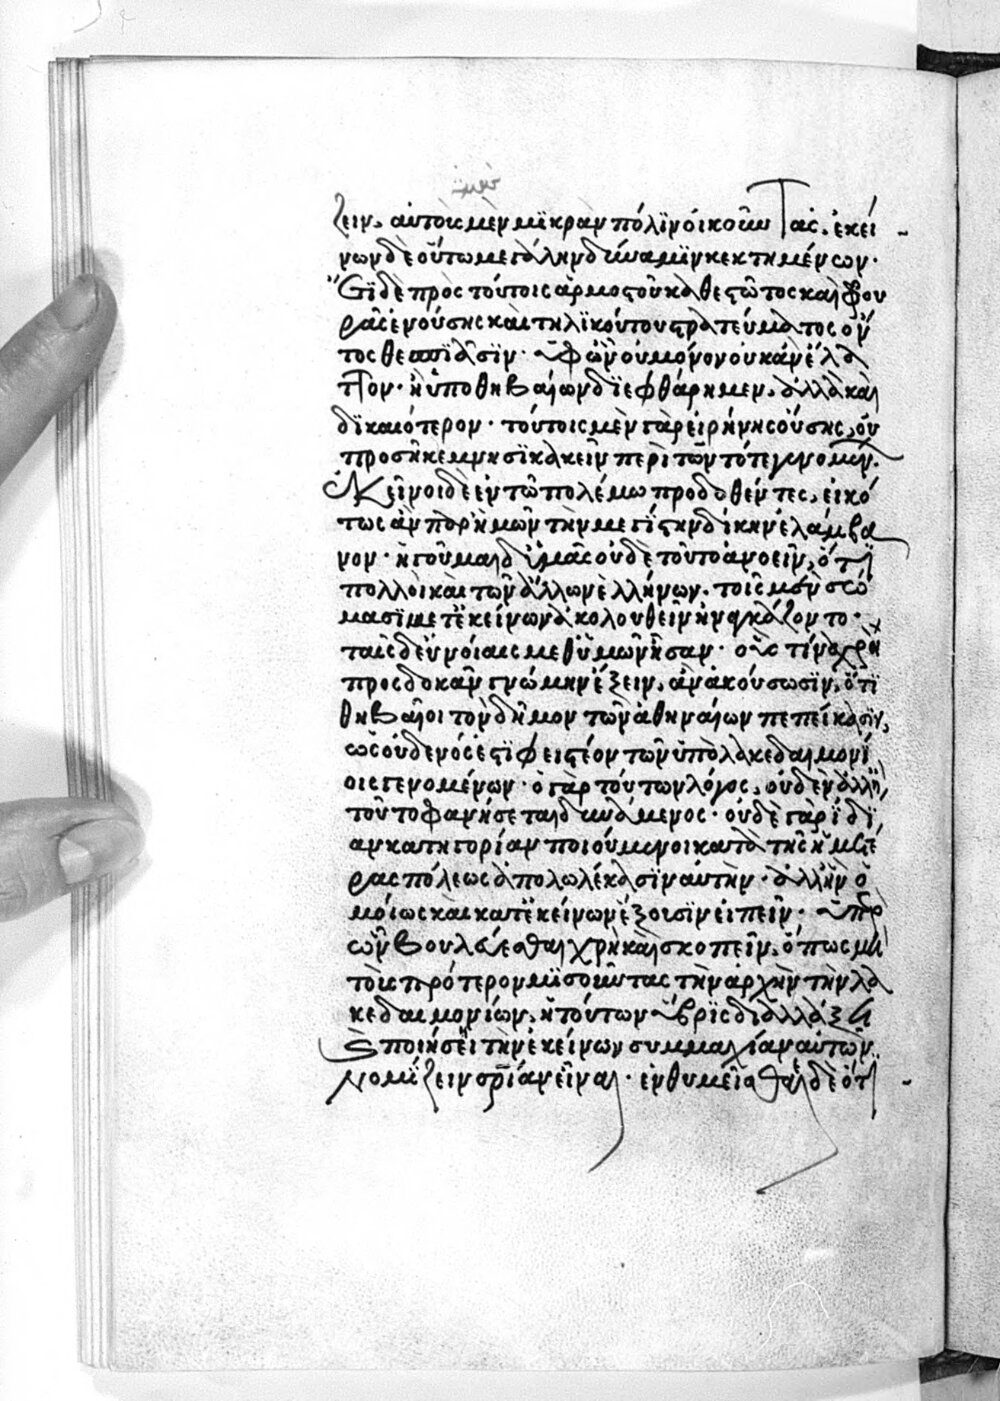 ζειν, αὐτοῖς μὲν μϊκρὰν πόλϊν ὀικοῦντας, ἐκεί
νων δὲ οὕτω μεγάλην δύναμϊν κεκτημένων·
Ἔϊ δὲ πρὸς τούτοις ἁρμοστοῦ καθεστῶτος καὶ φρου
ρᾶς ἐνούσης καὶ τηλϊκούτου στρατεύματος ὄν
τος θεσπϊᾶσϊν· ὑφ ὧν οὐ μόνον οὐκ ἂν ἔλατ
τον· ἢ ὑπο θηβαίων δϊεφθάρημεν, ἀλλὰ καὶ
δϊκαιότερον· τούτοις μὲν γὰρ εἰρήνης οὔσης, οὐ
προσῆκε μνησϊκακεῖν περὶ τῶν τότε γενομένων.
Ἐκεῖνοι δὲ ἐν τῶ πολέμω προδοθέντες, εἰκό
τως ἂν παρ ἡμῶν τὴν μεγίστην δίκην ἐλάμβα
νον· ἡγοῦμαι δ ὑμᾶς οὐδὲ τοῦτο ἀγνοεῖν, ὅτϊ
πολλοὶ καὶ τῶν ἄλλων ἑλλήνων. τοῖς μὲν σώ
μασϊ μετ ἐκείνων ἀκολουθεῖν ἠναγκάζοντο·
ταῖς δ ἐυνοίαις μεθ ὑμῶν ἦσαν· οὓς τίνα χρὴ
προσδοκᾶν γνώμην ἕξειν, ἂν ἀκούσωσϊν, ὅτϊ
θηβαῖοι τὸν δῆμον τῶν ἀθηναίων πεπείκασϊν,
ὡς οὐδενός ἐστϊ φειστέον τῶν ὑπὸ λακεδαιμονί
οις γενομένων· ὁ γὰρ τούτων λόγος, οὐδὲν ἄλλ ἢ
τοῦτο φανήσεται δυνάμενος· οὐδὲ γὰρ ἰδϊ
αν κατηγορίαν ποιούμενοι κατὰ τῆς ἡμετέ
ρας πόλεως ἀπολωλέκασϊν αὐτὴν· ἀλλ ἣν ὁ
μοίως καὶ κατ ἐκείνων ἕξουσϊν ἐιπεῖν· ὑπὲρ
ὧν βουλεύεσθαι χρὴ καὶ σκοπεῖν, ὅπως μὴ
τοὺς πρότερον μϊσοῦντας τὴν ἀρχὴν τὴν λα
κεδαιμονίων, ἡ τούτων ὕβρϊς διαλλάξει
ς ποιήσει τὴν ἐκείνων συμμαχίαν αὑτῶν
νομίζειν σρίαν εἶναι· ἐνθυμεῖσθαι δὲ ὅτϊ